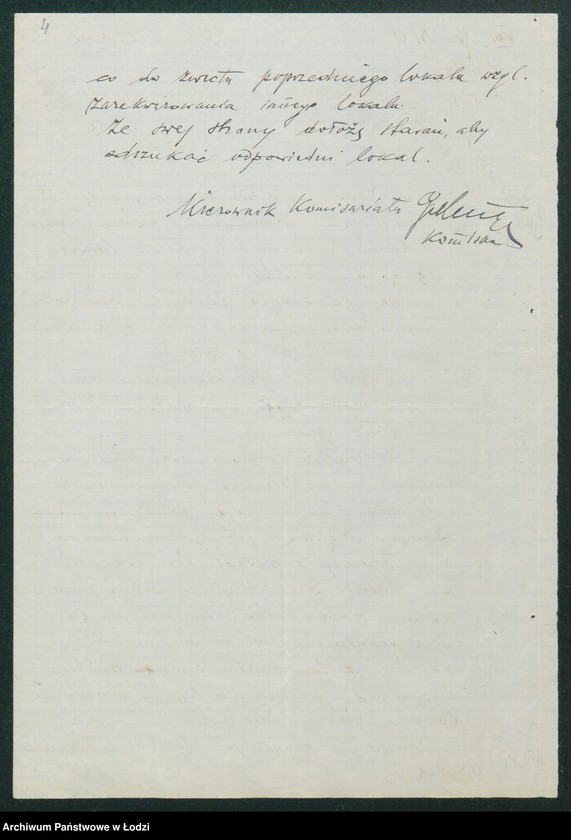 4
co do zwrotu poprzedniego lokalu wzgl.
zarekwirowania innego lokalu.
Ze swej strony dołożę starań, aby
odszukać odpowiedni lokal.
Kierownik Komisariatu
Komisarz
Archiwum Państwowe w Łodzi